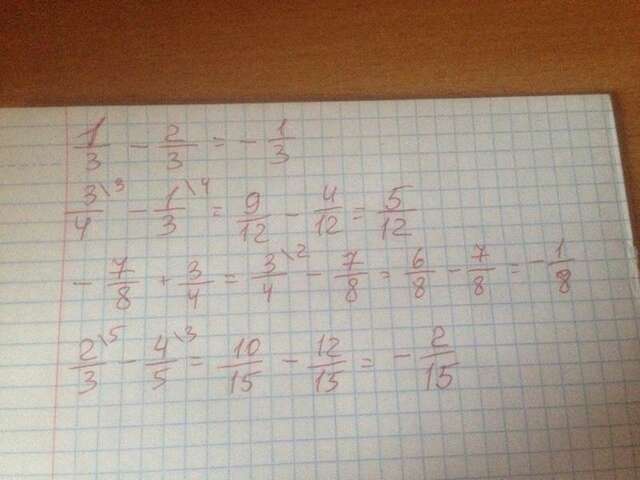 1/3 - 2/3 = - 1/3
3\3/4 - 1\4/3 = 9/12 - 4/12 = 5/12
- 7/8 + 3/4 = 3\2/4 - 7/8 = 6/8 - 7/8 = - 1/8
2\5/3 - 4\3/5 = 10/15 - 12/15 = - 2/15